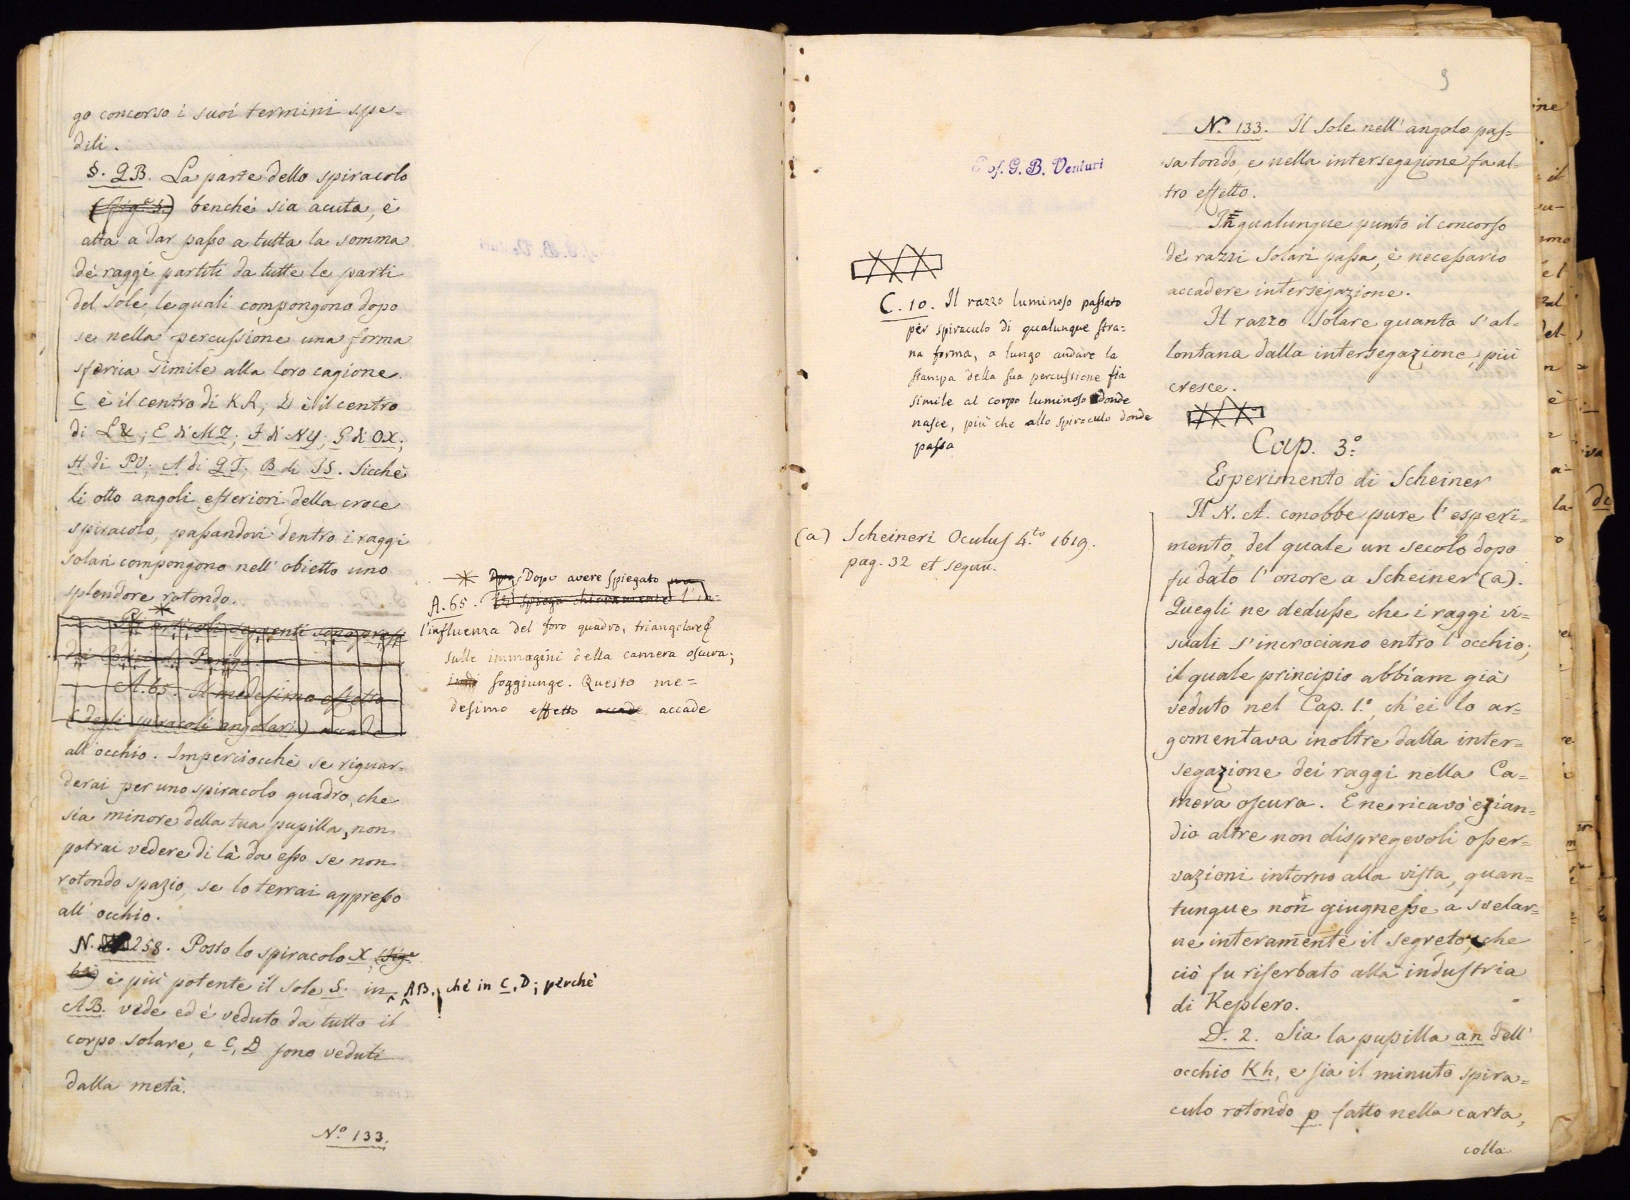 go concorso i suoi termini spe=
diti.
§. 2B. La parte dello spiracolo
(fig.ª 5.) benchè sia acuta, è
atta a dar passo a tutta la somma
de' raggi partiti da tutte le parti
del Sole, le quali compongono dopo
se nella percussione una forma
sferica simile alla loro cagione.
C è il centro di KR; D è il centro
di L&; E di MZ; F di NY; G di OX;
H di PV; A di QT; B di IS. Sicchè
li otto angoli esteriori della croce
spiracolo, passandovi dentro i raggi
solari compongono nell' obietto uno
splendore rotondo.
Gli articoli seguenti sono presi
dai Codici di Parigi.
A. 65. Il medesimo effetto
(degli spiracoli angolari) accade
all' occhio. Imperciocchè se riguar-
derai per uno spiracolo quadro, che
sia minore della tua pupilla, non
potrai vedere di là da esso se non
rotondo spazio, se lo terrai appresso
all' occhio.
N. 258. Posto lo spiracolo X, (fig.ª
) è più potente il sole S. in AB. che in C, D; perchè
AB. vede ed è veduto da tutto il
corpo solare, e C, D sono veduti
dalla metà.
N.º 133.
Dopo avere spiegato
A. 65. si spiega chiaramente l'in=
l'influenza del foro quadro, triangolare &
sulle immagini della camera oscura;
indi soggiunge. Questo me=
desimo effetto accade accade
Prof. G. B. Venturi
C. 10. Il razzo luminoso passato
per spiraculo di qualunque stra=
na forma, a lungo andare la
stampa della sua percussione fia
simile al corpo luminoso donde
nasce, più che allo spiraculo donde
passa
(a) Scheineri Oculus 4.to 1619.
pag. 32 et sequu.
9
N.º 133. Il Sole nell' angolo pas=
sa tondo, e nella intersegazione fa al=
tro effetto.
In qualunque punto il concorso
de' razzi Solari passa, è necessario
accadere intersegazione.
Il razzo Solare quanto s' al=
lontana dalla intersegazione, più
cresce.
Cap. 3.º
Esperimento di Scheiner
Il N. A. conobbe pure l' esperi=
mento, del quale un secolo dopo
fu dato l' onore a Scheiner (a).
Quegli ne dedusse che i raggi vi=
suali s' incrociano entro l' occhio;
il quale principio abbiam già
veduto nel Cap. 1.º, ch' ei lo ar=
gomentava inoltre dalla inter=
segazione dei raggi nella Ca=
mera oscura. E ne ricavò ezian=
dio altre non dispregevoli osser=
vazioni intorno alla vista, quan=
tunque non giugnesse a svelar=
ne interamente il segreto, che
ciò fu riserbato alla industria
di Keplero.
D. 2. Sia la pupilla an dell'
occhio Kh, e sia il minuto spira=
culo rotondo p fatto nella carta,
colla